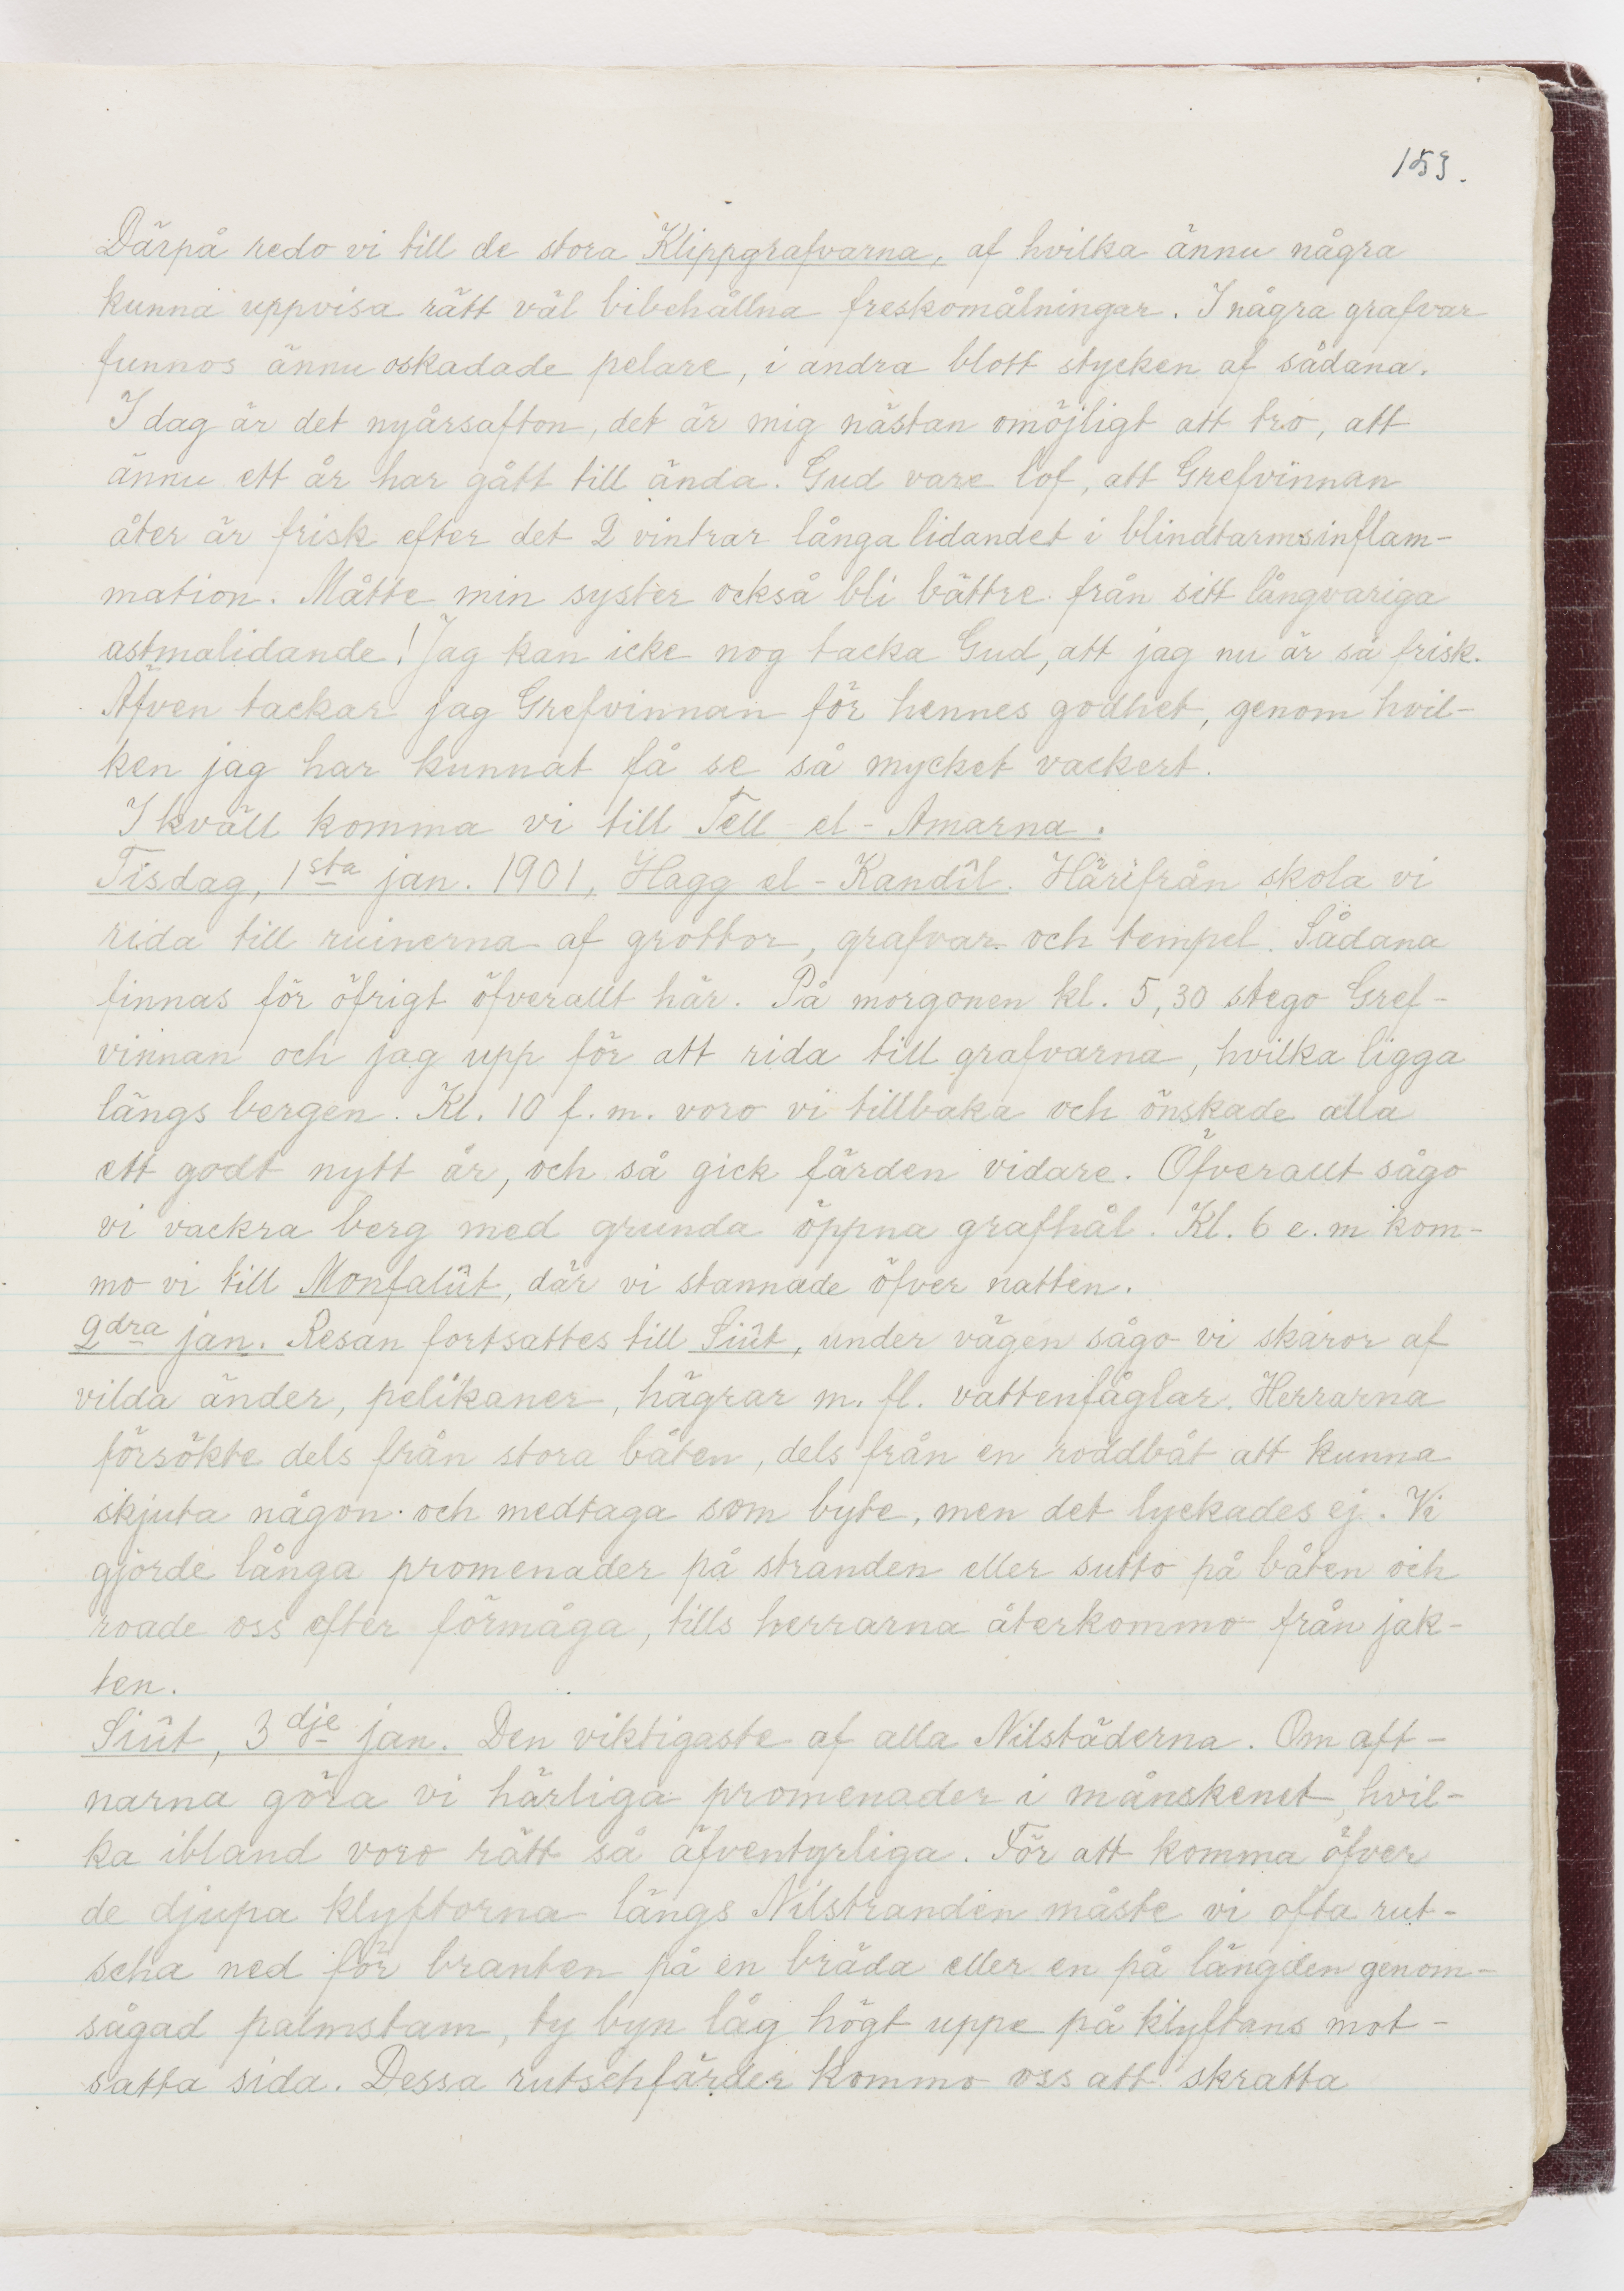 153.
Därpå redo vi till de stora Klippgrafvarna, af hvilka ännu några
kunna uppvisa rätt väl bibehållna freskomålningar. I några grafvar
funnos ännu oskadade pelare, i andra blott stycken af sådana.
I dag är det nyårsafton, det är mig nästan omöjligt att tro, att
ännu ett år har gått till ända. Gud vare lof, att Grefvinnan
åter är frisk efter det 2 vintrar långa lidandet i blindtarmsinflam-
mation. Måtte min syster också bli bättre från sitt långvariga
astmalidande! Jag kan icke nog tacka Gud, att jag nu är så frisk.
Äfven tackar jag Grefvinnan för hennes godhet, genom hvil-
ken jag har kunnat få se så mycket vackert.
I kväll komma vi till Tell el-Amarna.
Tisdag, 1sta jan. 1901, Hagg el-Kandîl. Härifrån skola vi
rida till ruinerna af grottor, grafvar och tempel. Sådana
finnas för öfrigt öfverallt här. På morgonen kl. 5,30 stego Gref-
vinnan och jag upp för att rida till grafvarna, hvilka ligga
längs bergen. Kl. 10 f.m. voro vi tillbaka och önskade alla
ett godt nytt år, och så gick färden vidare. Öfverallt sågo
vi vackra berg med grunda öppna grafhål. Kl. 6 e.m kom-
mo vi till Monfalût, där vi stannade öfver natten.
2dra jan. Resan fortsattes till Siût, under vägen sågo vi skaror af
vilda änder, pelikaner, hägrar m. fl. vattenfåglar. Herrarna
försökte dels från stora båten, dels från en roddbåt att kunna
skjuta någon och medtaga som byte, men det lyckades ej. Vi
gjorde långa promenader på stranden eller sutto på båten och
roade oss efter förmåga, tills herrarna återkommo från jak-
ten.
Siût, 3dje jan. Den viktigaste af alla Nilstäderna. Om aft-
narna göra vi härliga promenader i månskenet, hvil-
ka ibland voro rätt så äfventyrliga. För att komma öfver
de djupa klyftorna längs Nilstranden måste vi ofta rut-
scha ned för branten på en bräda eller en på längden genom-
sågad palmstam, ty byn låg högt uppe på klyftans mot-
satta sida. Dessa rutschfärder kommo oss att skratta